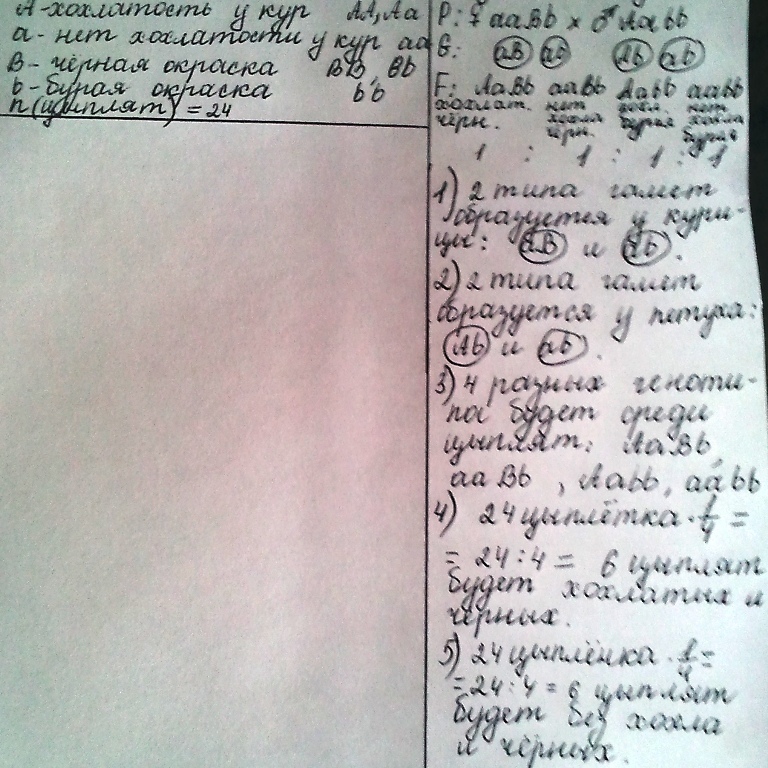 А-хохлатость у кур АА, Аа
а-нет хохлатости у кур аа
В-чёрная окраска ВВ, Вb
b-бурая окраска bb
n(цыплят) = 24
Р: ♀ ааВb × ♂ Ааbb
G: аВ аb Аb аb
F: АаВb ааВb Ааbb ааbb
хохлат. нет хохл. нет
чёрн. хохла бурая хохла
чёрн. бурая
1 : 1 : 1 : 1
1) 2 типа гамет
образуется у кури-
цы: аВ и аb.
2) 2 типа гамет
образуется у петуха:
Аb и аb.
3) 4 разных геноти-
па будет среди
цыплят: АаВb,
ааВb, Ааbb, ааbb
4) 24 цыплётка · 1/4 =
= 24 : 4 = 6 цыплят
будет хохлатых и
чёрных.
5) 24 цыплёнка · 1/4 =
= 24 : 4 = 6 цыплят
будет без хохла
и чёрных.